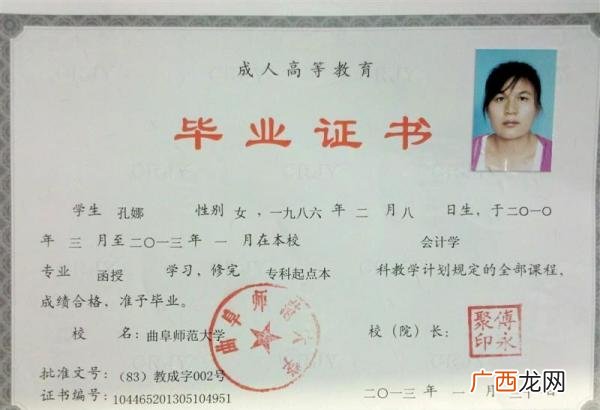 成人高等教育
毕业证书
学生 孔娜 性别 女，一九八六 年 二 月 八 日生，于二〇一〇
年 三 月至二〇一三年 一 月在本校 会计学
专业 函授 学习，修完 专科起点本 科教学计划规定的全部课程，
成绩合格，准予毕业。
校 名：曲阜师范大学 校（院）长：
曲阜师范大学
傅永聚印
批准文号：（83）教成字002号
证书编号：104465201305104951 二〇一三年 一 月
广西龙网